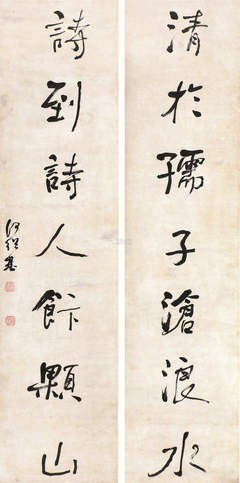 清於孺子滄浪水
詩到詩人飯顆山
何紹基